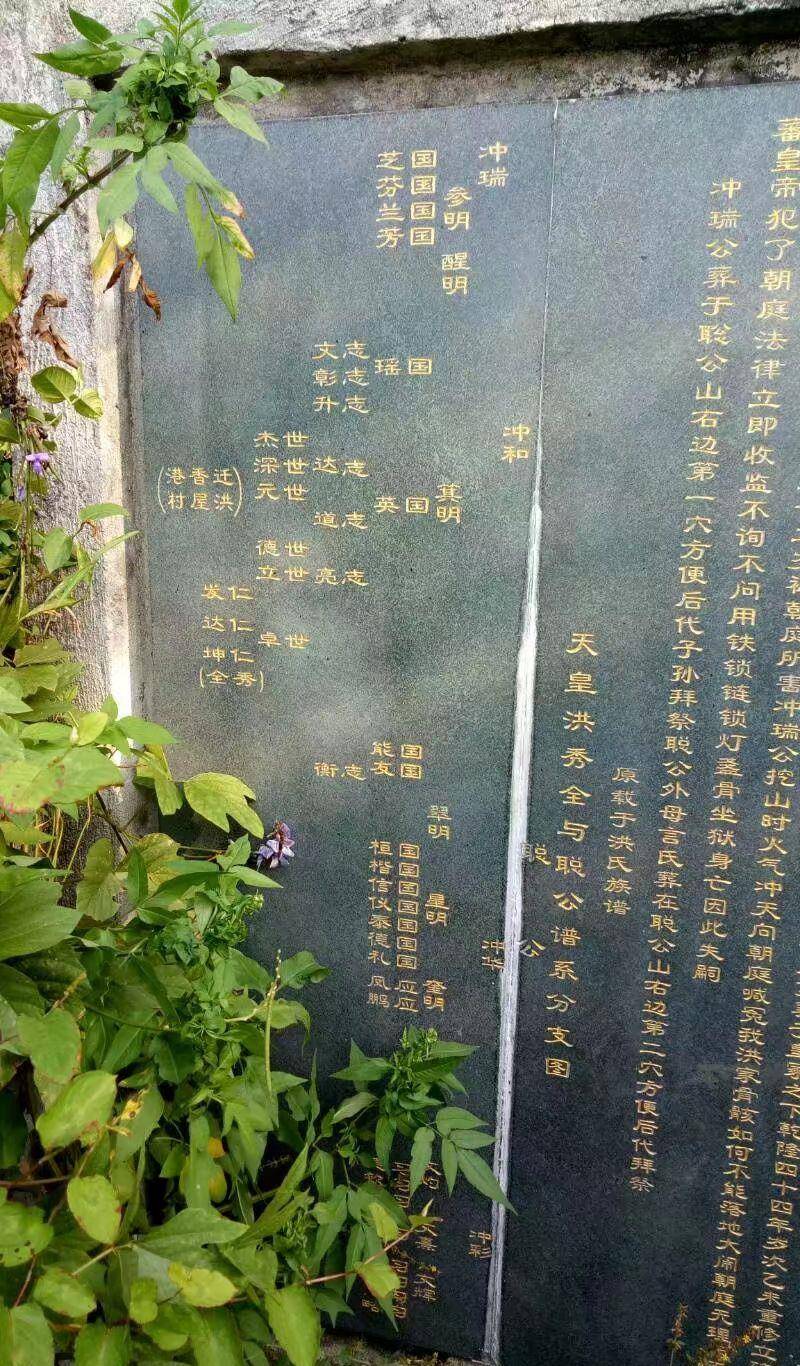 乾隆四十四年岁次乙未重修立
朝庭所害冲瑞公挖山时火气冲天向朝庭喊冤我洪家骨骸如何不能落地大闹朝庭无理
蕃皇帝犯了朝庭法律立即收监不询不问用铁锁链锁灯盏骨坐狱身亡因此失嗣
冲瑞公葬于聪公山右边第一穴方便后代子孙拜祭聪公外母言氏葬在聪公山右边第二穴方便后代拜祭
原载于洪氏族谱
天皇洪秀全与聪公谱系分支图
聪公
冲瑞
冲和
冲华
冲彩
参明
醒明
明
明
星明
奎明
文辉
国芝
国芬
国兰
国芳
国瑶
国英
国能
国友
国桓
国楷
国信
国仪
国泰
国德
国礼
应凤
应鹏
志文
志彰
志升
志达
志道
志亮
志衡
世杰
世深
世元
世德
世立
世卓
仁发
仁达
仁坤
(秀全)
(迁洪
香屋
港村)